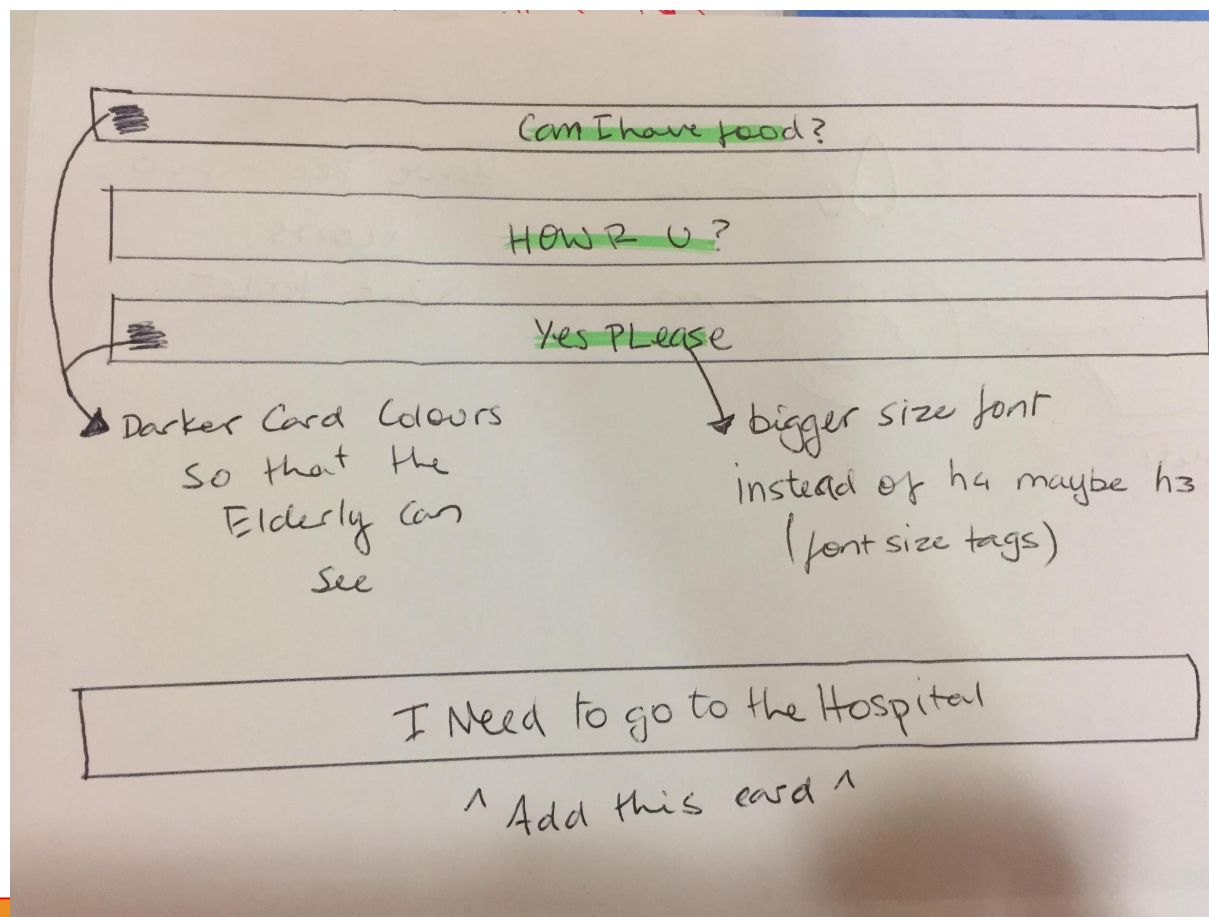 Can I have food?
HOW R U?
Yes PLease
Darker Card Colours
so that the
Elderly can
see
bigger size font
instead of h4 maybe h3
(font size tags)
I Need to go to the Hospital
^ Add this card ^